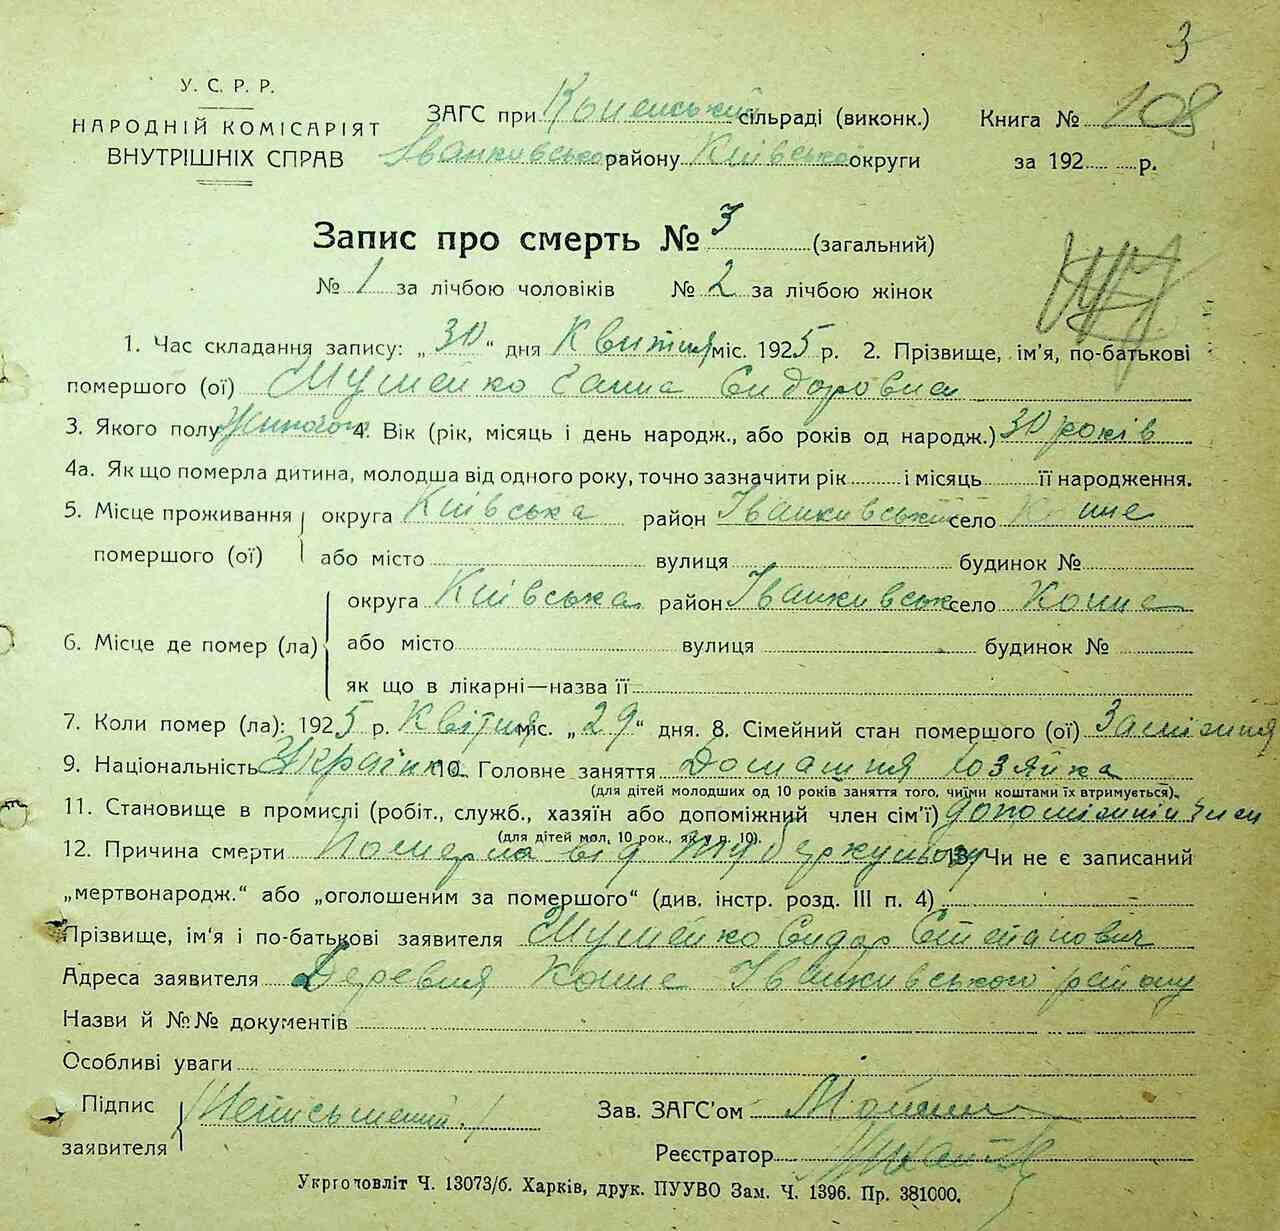 3
У. С. Р. Р.
НАРОДНІЙ КОМІСАРІЯТ
ВНУТРІШНІХ СПРАВ
ЗАГС при сільраді (виконк.) Книга № 108
Іванківсько району Київської округи за 192 р.
Запис про смерть № 3 (загальний)
№ 1 за лічбою чоловіків № 2 за лічбою жінок
1. Час складання запису: „30“ дня Квитня міс. 1925 р. 2. Прізвище, ім'я, по-батькові
помершого (ої) Ганна Сидоровна
3. Якого полу 4. Вік (рік, місяць і день народж., або років од народж.) 30 років
4а. Як що померла дитина, молодша від одного року, точно зазначити рік і місяць її народження.
5. Місце проживання помершого (ої) округа Київська район Іванкивський село
або місто вулиця будинок №
6. Місце де помер (ла) округа Київська район Іванкивськ село
або місто вулиця будинок №
як що в лікарні—назва її
7. Коли помер (ла): 1925 р. Квітня міс. „29“ дня. 8. Сімейний стан помершого (ої) Замужня
9. Національність Українка 10. Головне заняття Домашня хозяйка
(для дітей молодших од 10 років заняття того, чиїми коштами їх втримується).
11. Становище в промислі (робіт., служб., хазяїн або допоміжний член сім'ї)
(для дітей мол. 10 рок., як у п. 10).
12. Причина смерти Померла від туберкульозу 13. Чи не є записаний
„мертвонародж.“ або „оголошеним за помершого“ (див. інстр. розд. III п. 4)
Прізвище, ім'я і по-батькові заявителя Сидор Степанович
Адреса заявителя Деревня Іванкивського району
Назви й №№ документів
Особливі уваги
Підпис заявителя Неписьменний
Зав. ЗАГС'ом
Реєстратор
Укрголовліт Ч. 13073/б. Харків, друк. ПУУВО Зам. Ч. 1396. Пр. 381000.